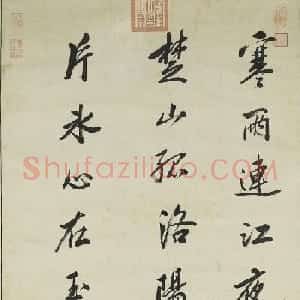 寒雨連江夜
楚山孤洛陽
片氷心在玉
Shufaziliao.com